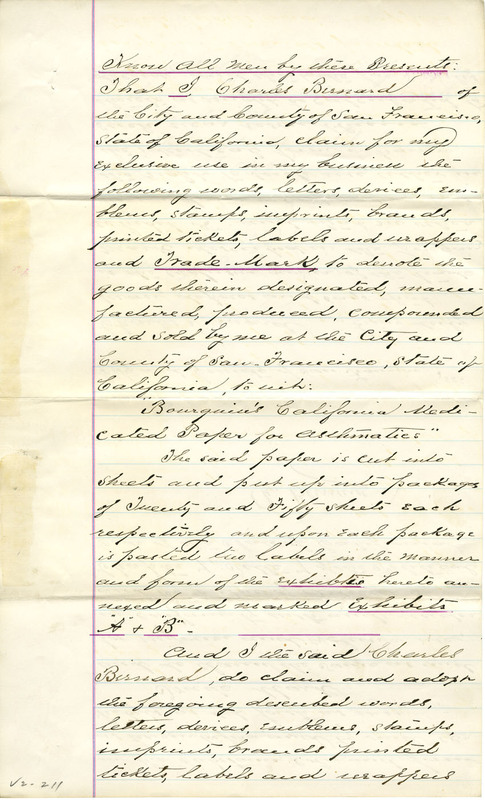 Know all Men by these Presents:
That I Charles Bernard of
the City and County of San Francisco,
State of California, claim for my
exclusive use in my business the
following words, letters, devices, em-
blems, stamps, imprints, brands,
printed tickets, labels and wrappers
and Trade-Mark, to denote the
goods therein designated, manu-
factured, produced, compounded
and sold by me at the City and
County of San Francisco, State of
California, to wit:
"Bourguin's California Medi-
cated Paper for Asthmatics"
The said paper is cut into
sheets and put up into packages
of Twenty and Fifty sheets each
respectively and upon each package
is pasted two labels in the manner
and form of the exhibits hereto an-
nexed and marked Exhibits
"A" & "B".
And I the said Charles
Bernard, do claim and adopt
the foregoing described words,
letters, devices, emblems, stamps,
imprints, brands printed
tickets, labels and wrappers
V2-211